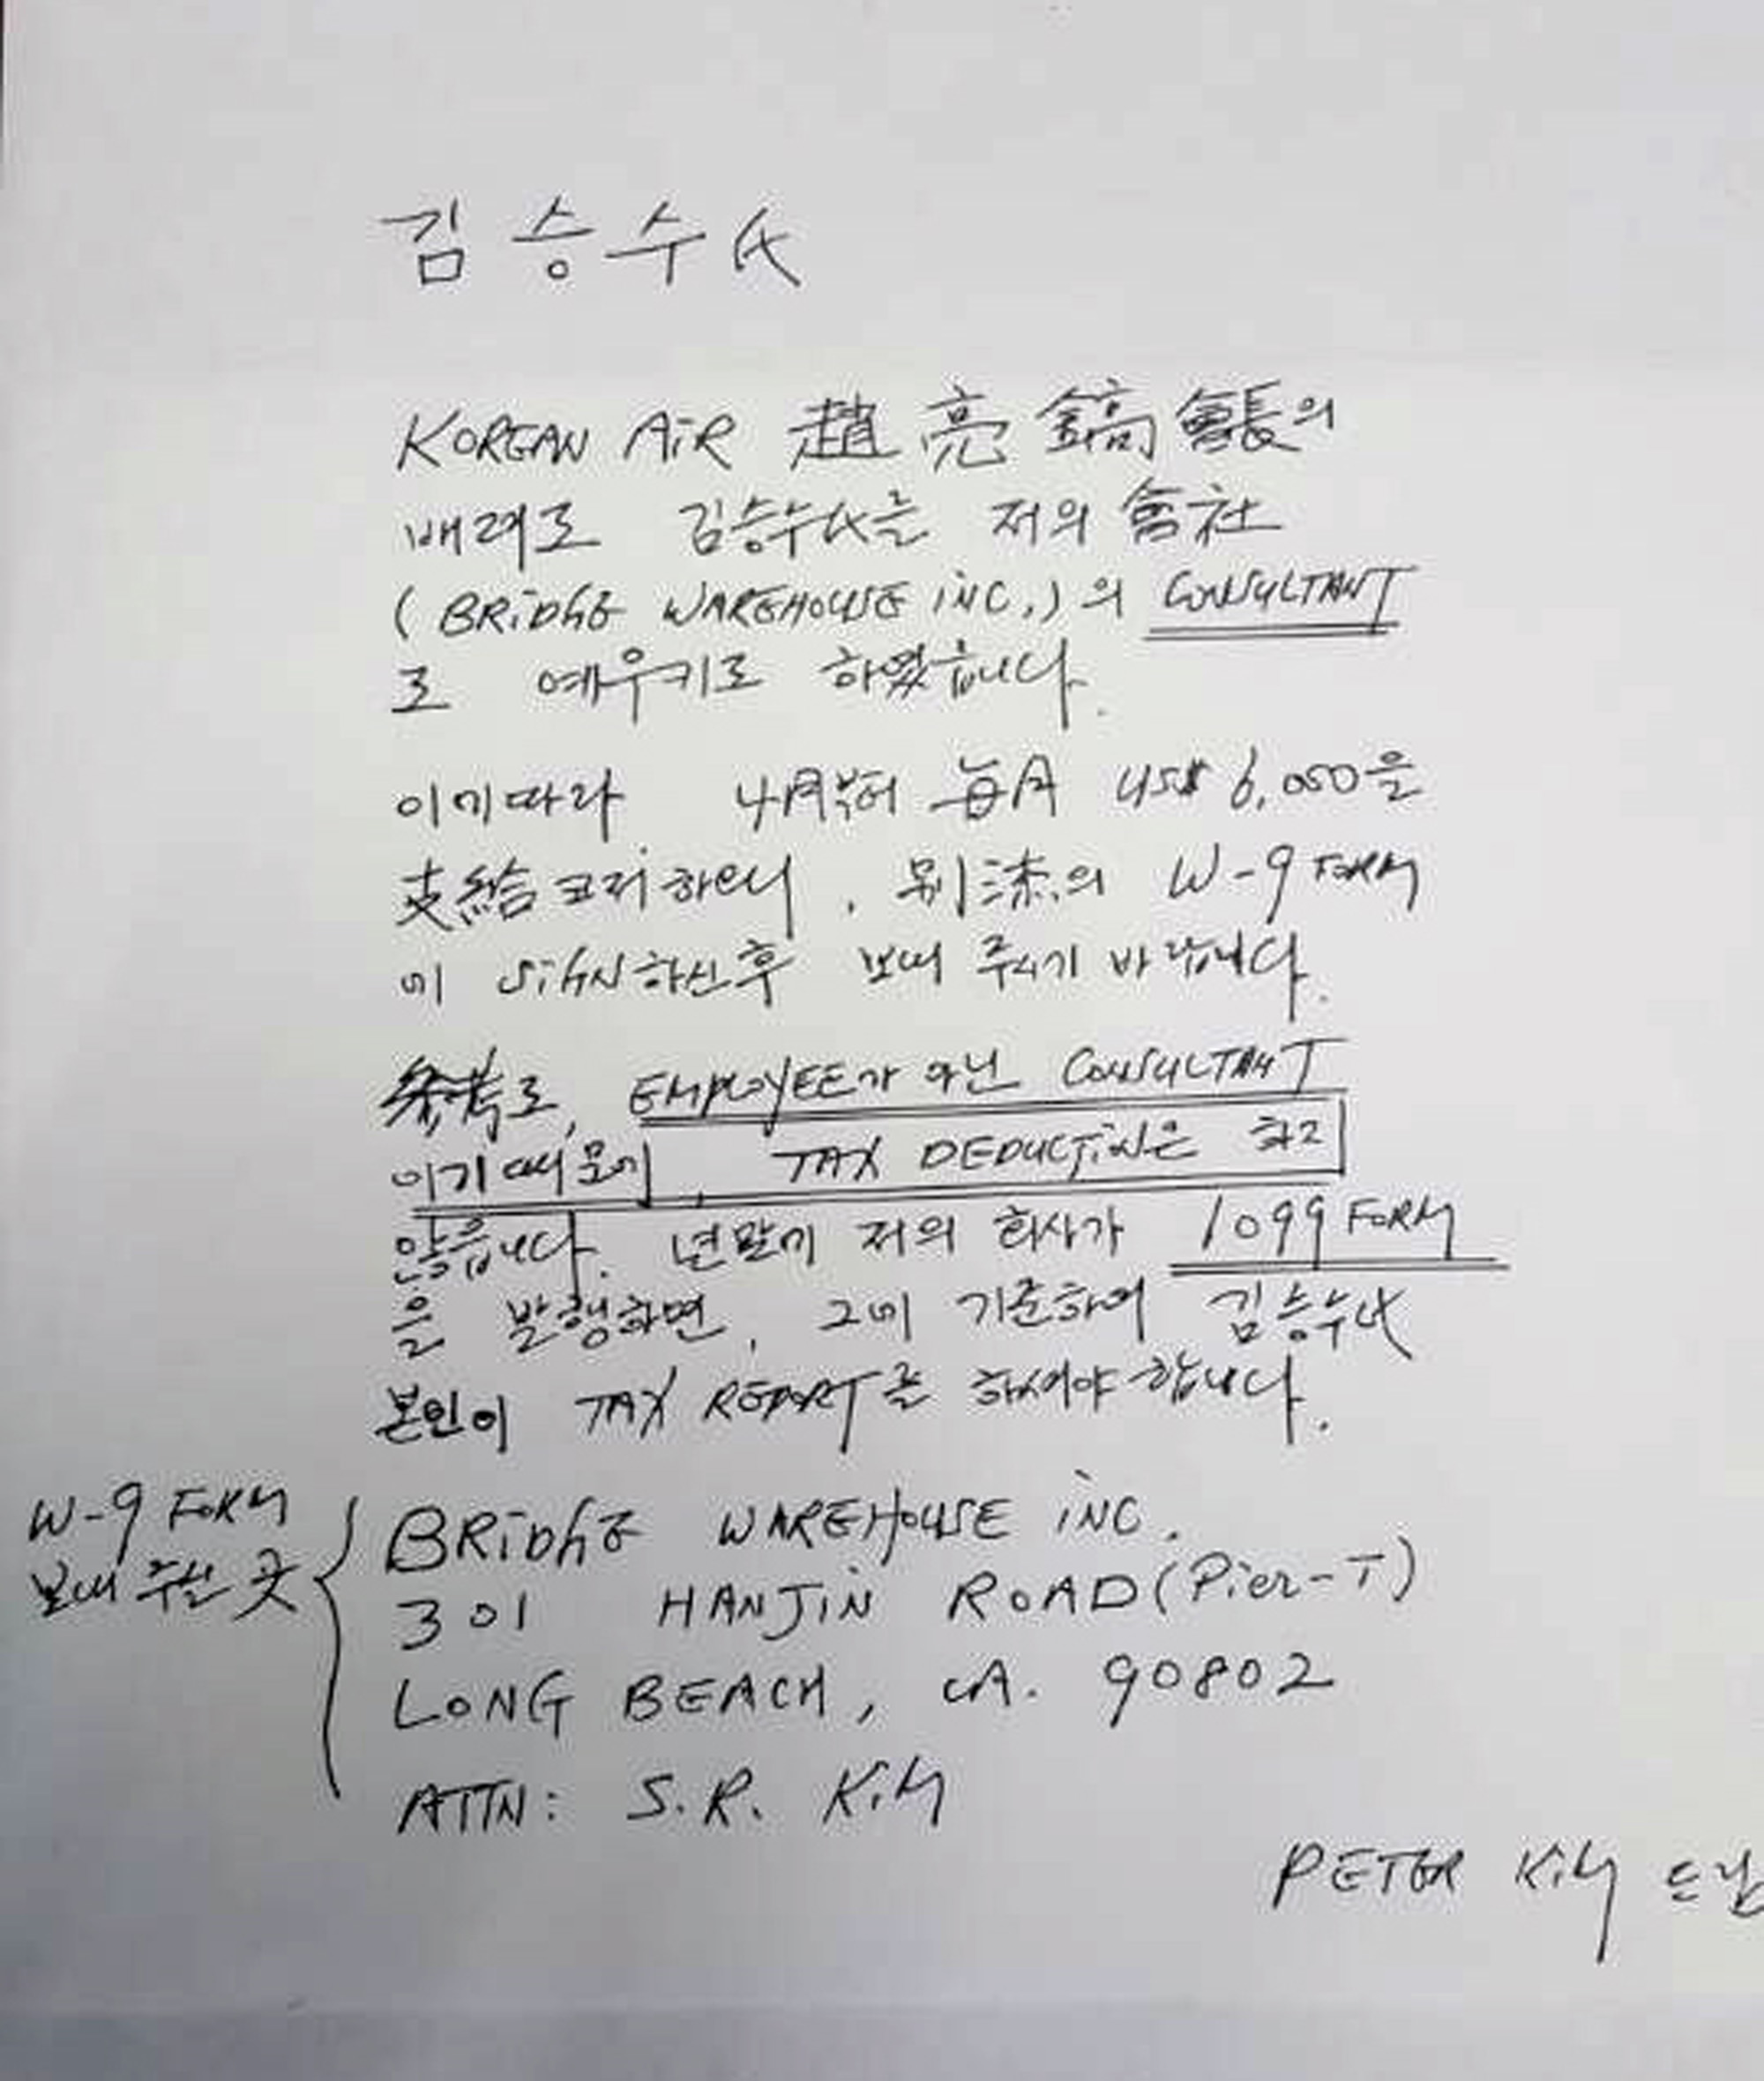 김승수 氏
KOREAN AiR 趙亮鎬 會長의
배려로 김승수氏를 저의 會社
(BRiDGE WAREHOUSE iNC.)의 CONSULTANT
로 예우키로 하였습니다.
이에따라 4月부터 每月 US$ 6,000을
支給코저하오니, 別添의 W-9 FORM
에 SiGN하신후 보내 주시기 바랍니다.
參考로, EMPLOYEE가 아닌 CONSULTANT
이기 때문에, TAX DEDUCTiON은 하지
않습니다. 년말에 저의 회사가 1099 FORM
을 발행하면, 그에 기준하여 김승수氏
본인이 TAX REPORT를 하셔야 합니다.
W-9 FORM
보내 주실 곳
BRiDGE WAREHOUSE iNC.
301 HANJiN ROAD (Pier-T)
LONG BEACH, CA. 90802
ATTN: S.R. KiM
PETER KiM 드림